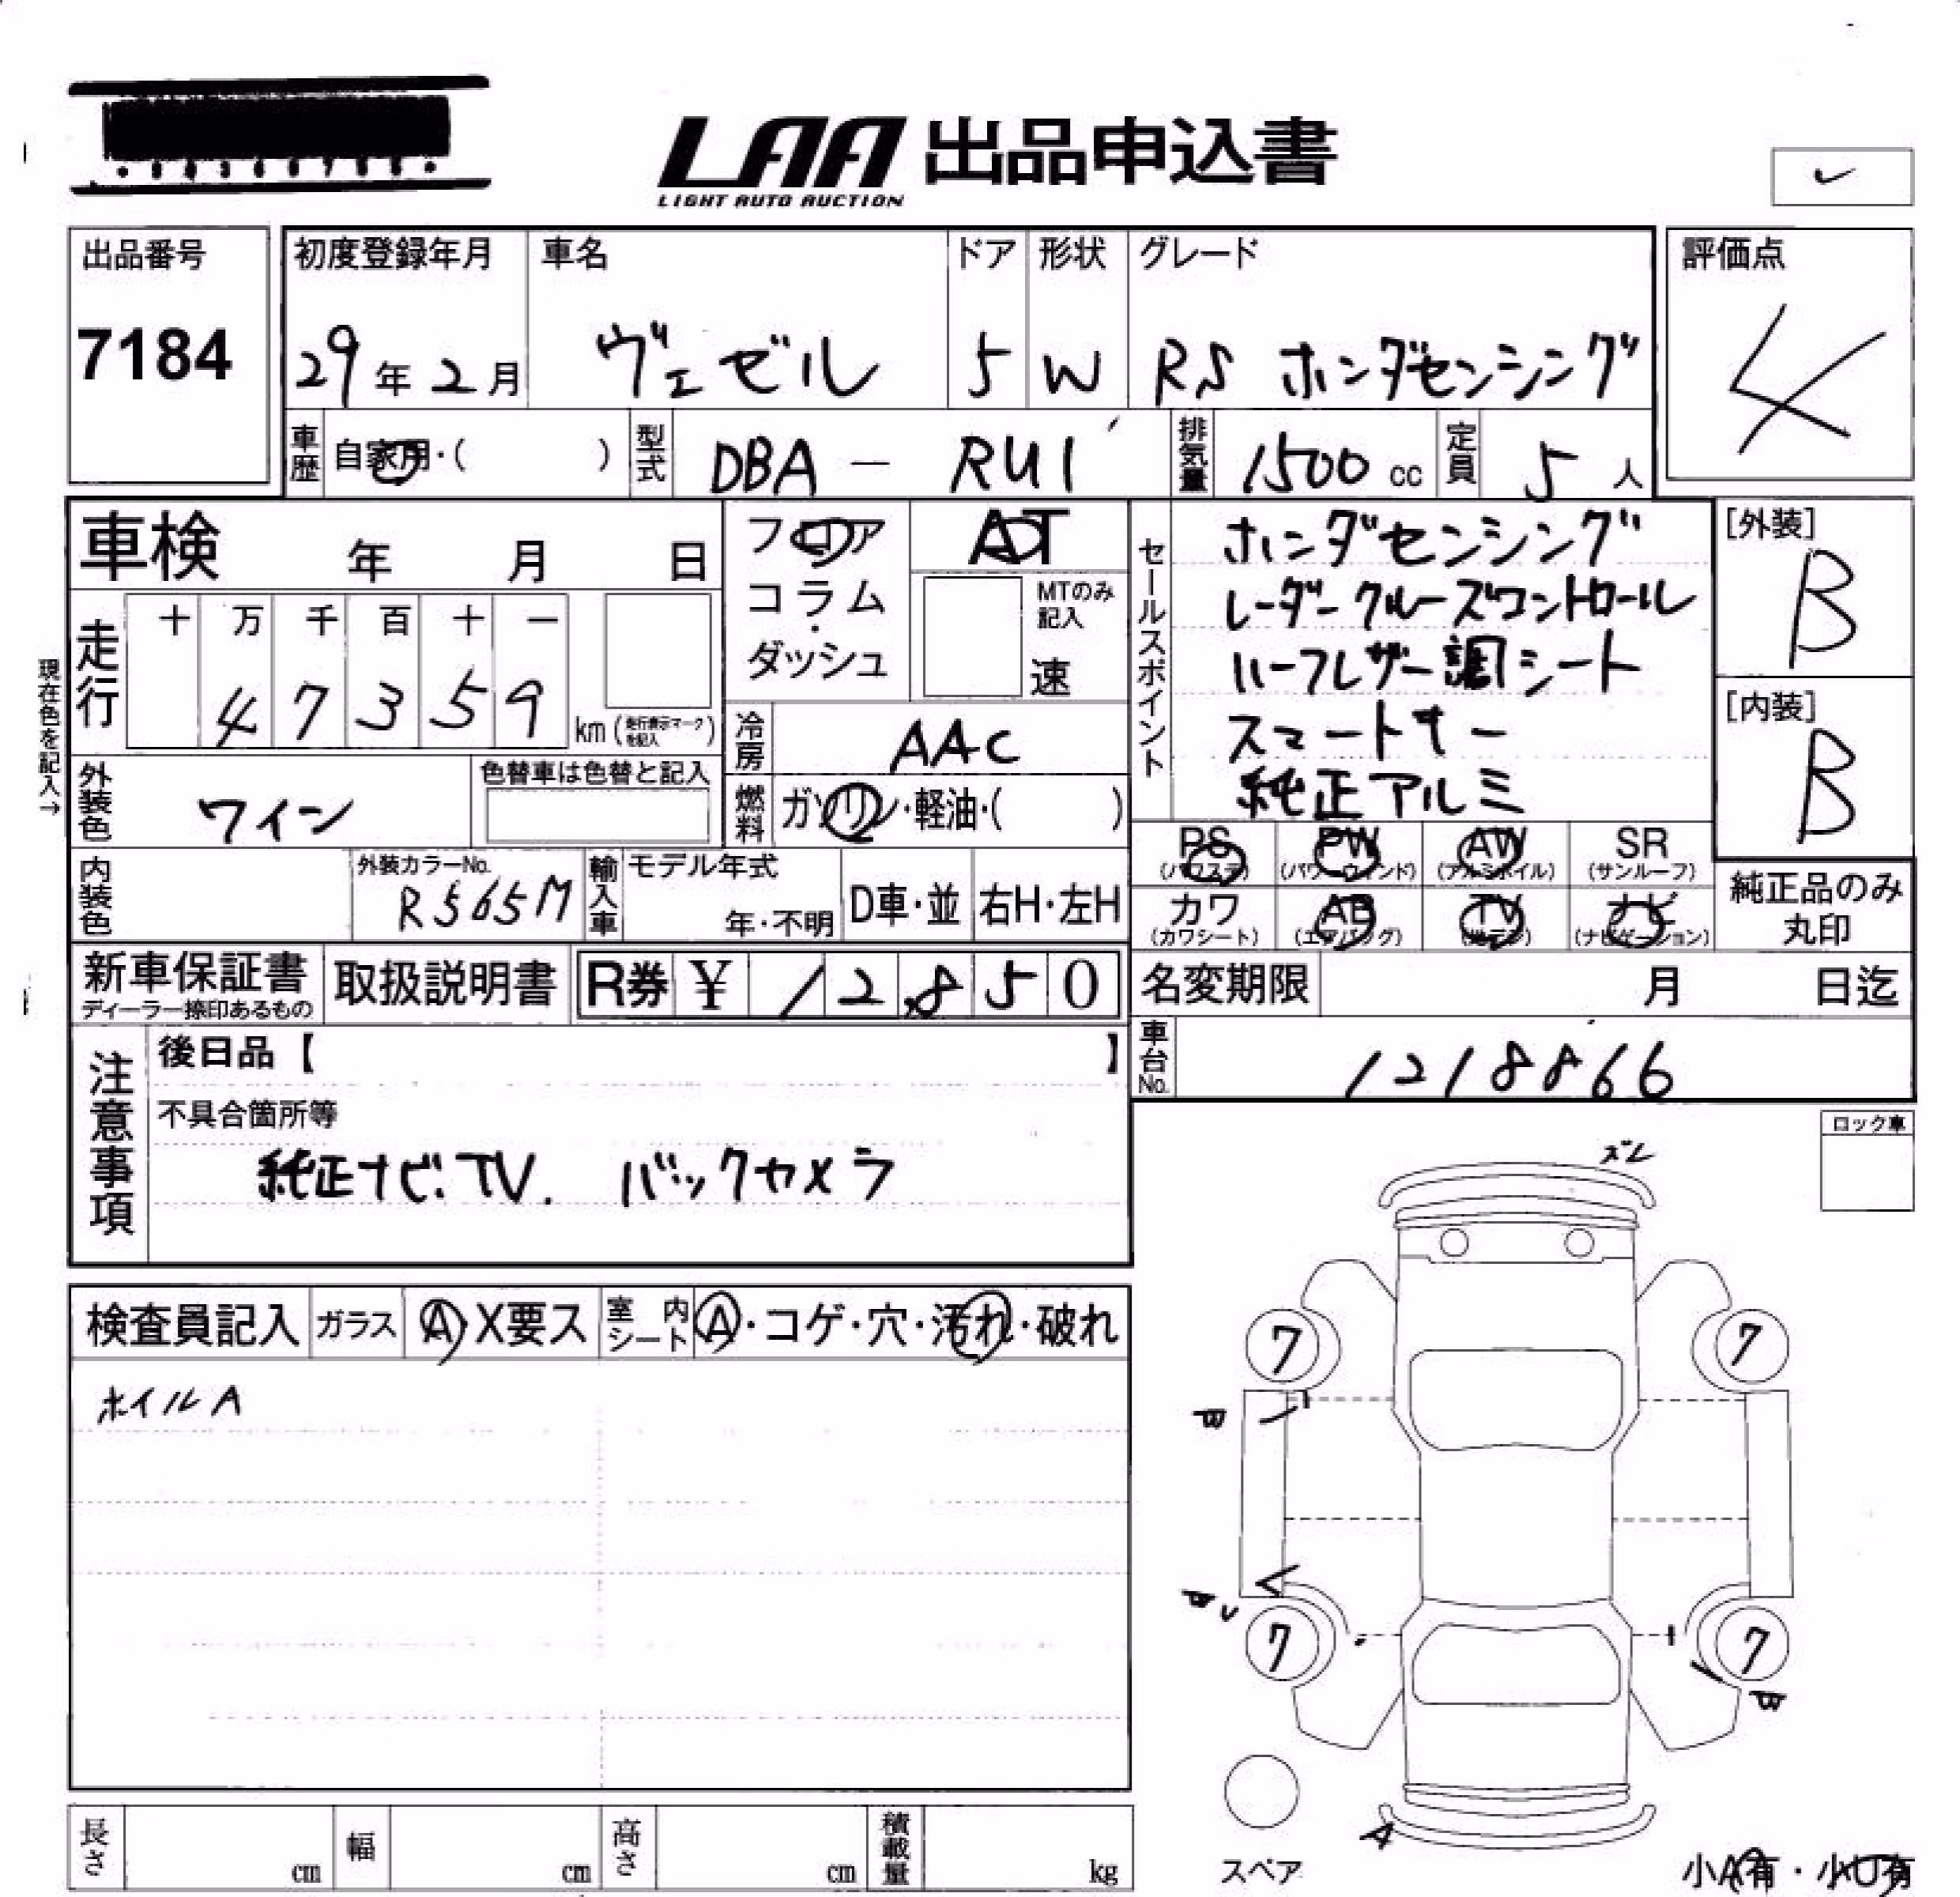 LAA 出品申込書
LIGHT AUTO AUCTION
出品番号
7184
初度登録年月
29年2月
車名
ヴェゼル
ドア
5
形状
W
グレード
RS ホンダセンシング
評価点
4
車歴 自家用・( )
型式 DBA - RU1
排気量 1500 cc
定員 5 人
車検 年 月 日
フロア
コラム
ダッシュ
AT
MTのみ記入
速
セールスポイント
ホンダセンシング
レーダークルーズコントロール
ハーフレザー調シート
スマートキー
純正アルミ
[外装]
B
[内装]
B
現在色を記入→
走行
十 万 千 百 十 一
4 7 3 5 9 km (走行表示マークを記入)
冷房 AAC
外装色 ワイン
色替車は色替と記入
燃料 ガソリン・軽油・( )
内装色
外装カラーNo.
R565M
輸入車
モデル年式
年・不明
D車・並
右H・左H
PS PW AW SR
(パワステ) (パワーウィンド) (アルミホイル) (サンルーフ)
カワ AB TV ナビ
(カワシート) (エアバッグ) (地デジ) (ナビゲーション)
純正品のみ
丸印
新車保証書
ディーラー捺印あるもの
取扱説明書
R券 ¥ 12,850
名変期限 月 日迄
車台No. 1218866
注意事項
後日品【 】
不具合箇所等
純正ナビ.TV. バックカメラ
ロック車
検査員記入 ガラス A・X要ス 室内シート A・コゲ・穴・汚れ・破れ
ホイルA
ズレ
7
7
7
7
A
スペア
小A有・小U有
長さ cm 幅 cm 高さ cm 積載量 kg